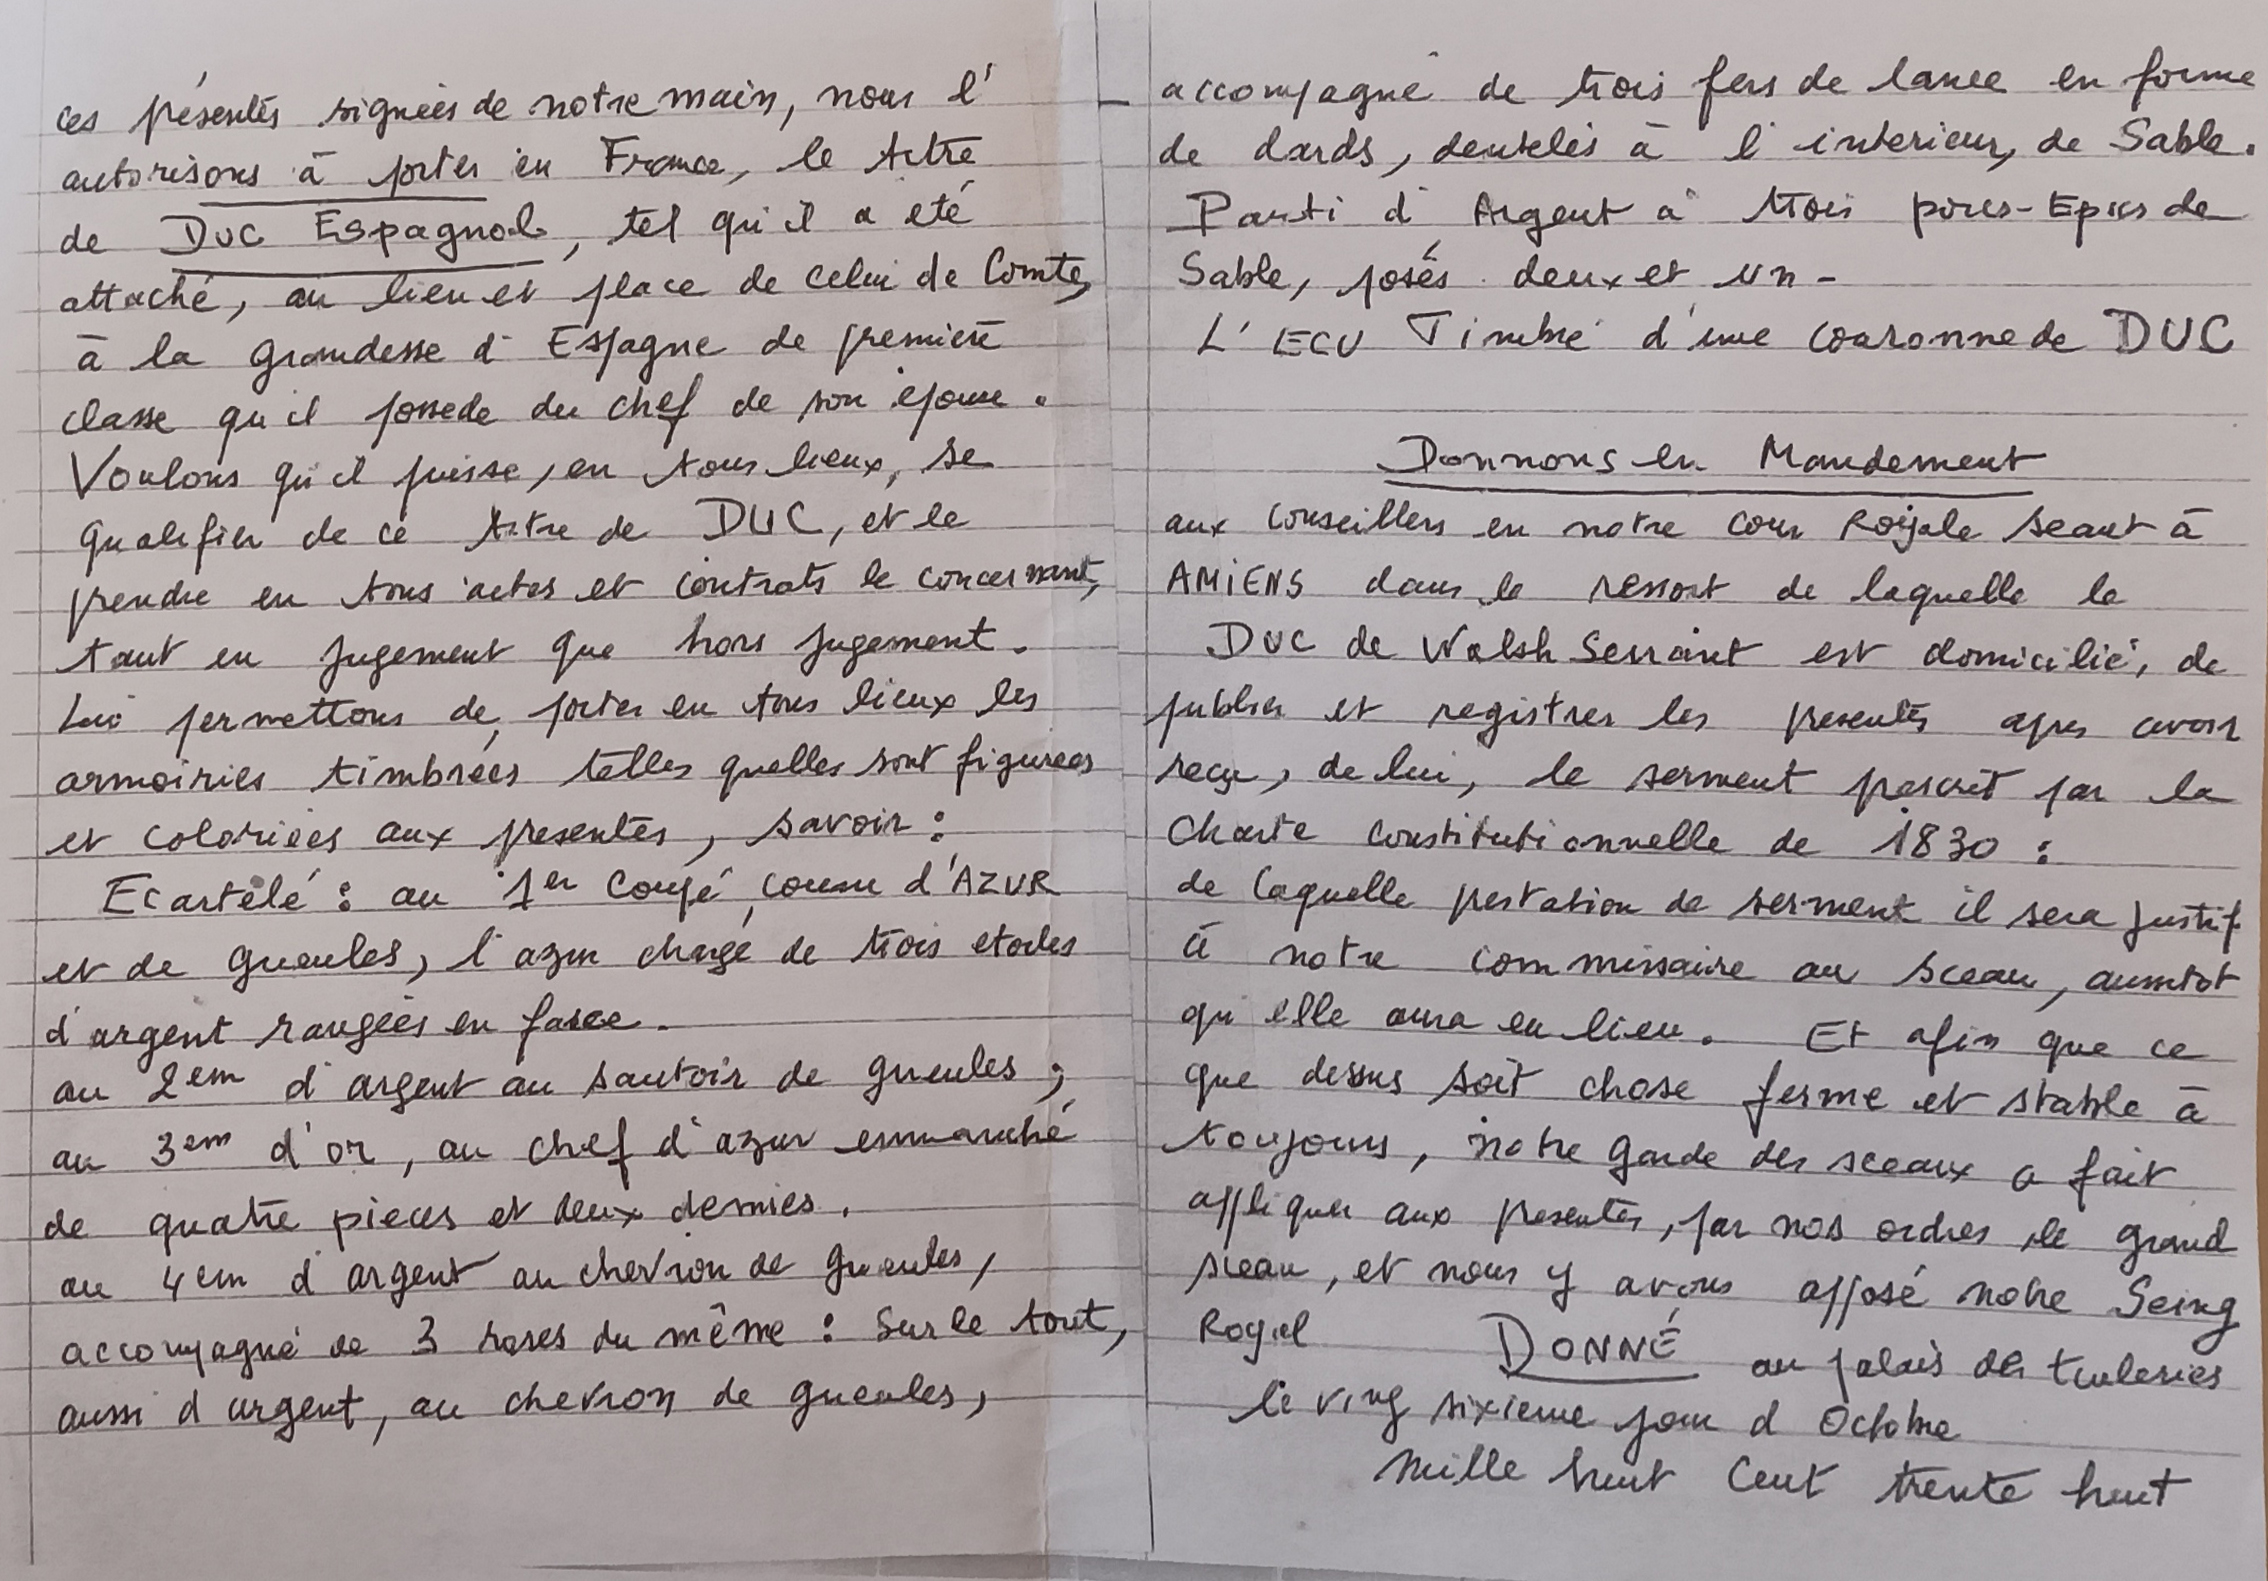 ces présentés signées de notre main, nous l'
autorisons à porter en France, le titre
de DUC Espagnol, tel qu'il a été
attaché, au lieu et place de celui de Comte,
à la grandesse d'Espagne de première
classe qu'il possede du chef de son épouse.
Voulons qu'il puisse, en tous lieux, se
qualifier de ce titre de DUC, et le
prendre en tous actes et contrats le concernant,
tant en jugement que hors jugement.
Lui permettons de porter en tous lieux les
armoiries timbrées telles quelles sont figurées
et coloriées aux presentes, savoir :
Ecartelé : au 1er Coupé, cousu d'AZUR
et de gueules, l'azur chargé de trois etoiles
d'argent rangées en fasce.
au 2em d'argent au sautoir de gueules ;
au 3em d'or, au chef d'azur emmanché
de quatre pieces et deux demies.
au 4em d'argent au chevron de gueules,
accompagné de 3 roses du même : Sur le tout,
aussi d'argent, au chevron de gueules,
accompagné de trois fers de lance en forme
de dards, dentelés à l'interieur, de Sable.
Parti d'Argent à trois porcs-Epics de
Sable, posés deux et un -
L'ECU Timbré d'une couronne de DUC
Donnons en Mandement
aux conseillers en notre cour Royale seant à
AMIENS dans le ressort de laquelle le
DUC de Walsh Serrant est domicilié, de
publier et registrer les presentes apres avoir
reçu, de lui, le serment prescrit par la
Charte constitutionnelle de 1830 :
de laquelle prestation de serment il sera justif
à notre commissaire au sceau, aussitot
qu'elle aura eu lieu. Et afin que ce
que dessus soit chose ferme et stable à
toujours, notre garde des sceaux a fait
appliquer aux presentes, par nos ordres, le grand
sceau, et nous y avons apposé notre Seing
Royal DONNÉ au palais des tuileries
le ving sixieme jour d'Octobre
mille huit Cent trente huit